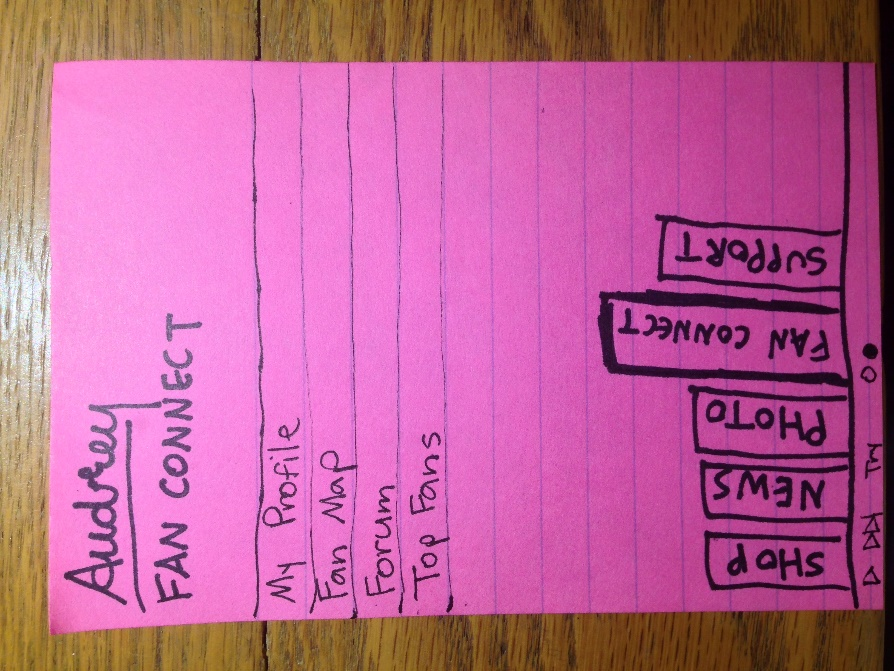 Audrey
FAN CONNECT
My Profile
Fan Map
Forum
Top Fans
SHOP
NEWS
PHOTO
FAN CONNECT
SUPPORT